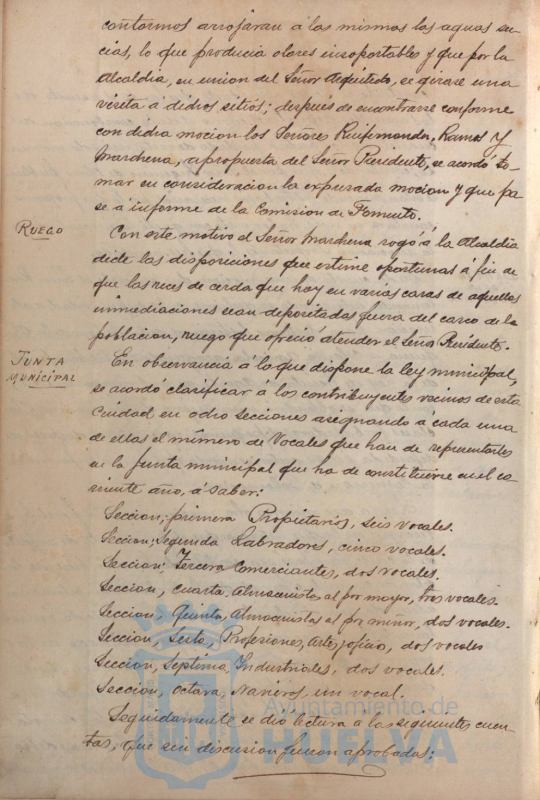 contornos arrojaran á los mismos las aguas su-
cias, lo que producia olores insoportables y que por la
Alcaldia, en union del Señor Arquitecto, se girase una
visita á dichos sitios; despues de encontrarse conforme
con dicha mocion los Señores Ruifernandez, Ramos y
Marchena, a propuesta del Señor Presidente, se acordó to-
mar en consideracion la expresada mocion y que pa-
se á informe de la Comision de Fomento.
RUEGO
Con este motivo el Señor Marchena rogó á la Alcaldia
dicte las disposiciones que estime oportunas á fin de
que las reses de cerda que hay en varias casas de aquellas
inmediaciones sean depositadas fuera del casco de la
poblacion, ruego que ofreció atender el Señor Presidente.
JUNTA
MUNICIPAL
En observancia á lo que dispone la ley municipal,
se acordó clasificar á los contribuyentes vecinos de esta
Ciudad en ocho secciones asignando á cada una
de ellas el número de Vocales que han de representarlos
en la Junta municipal que ha de constituirse en el co-
rriente año, á saber:
Seccion; primera Propietarios, seis vocales.
Seccion; Segunda Labradores, cinco vocales.
Seccion; Tercera Comerciantes, dos vocales.
Seccion, Cuarta, Almacenistas al por mayor, tres vocales.
Seccion, Quinta, Almacenistas al por menor, dos vocales.
Seccion, Sexta, Profesiones, Artes y oficio, dos vocales
Seccion, Septima, Industriales, dos vocales.
Seccion, octava, Navieros, un vocal.
Seguidamente se dió lectura a las siguientes cuen-
tas, que sin discusion fueron aprobadas:
Ayuntamiento de
HUELVA